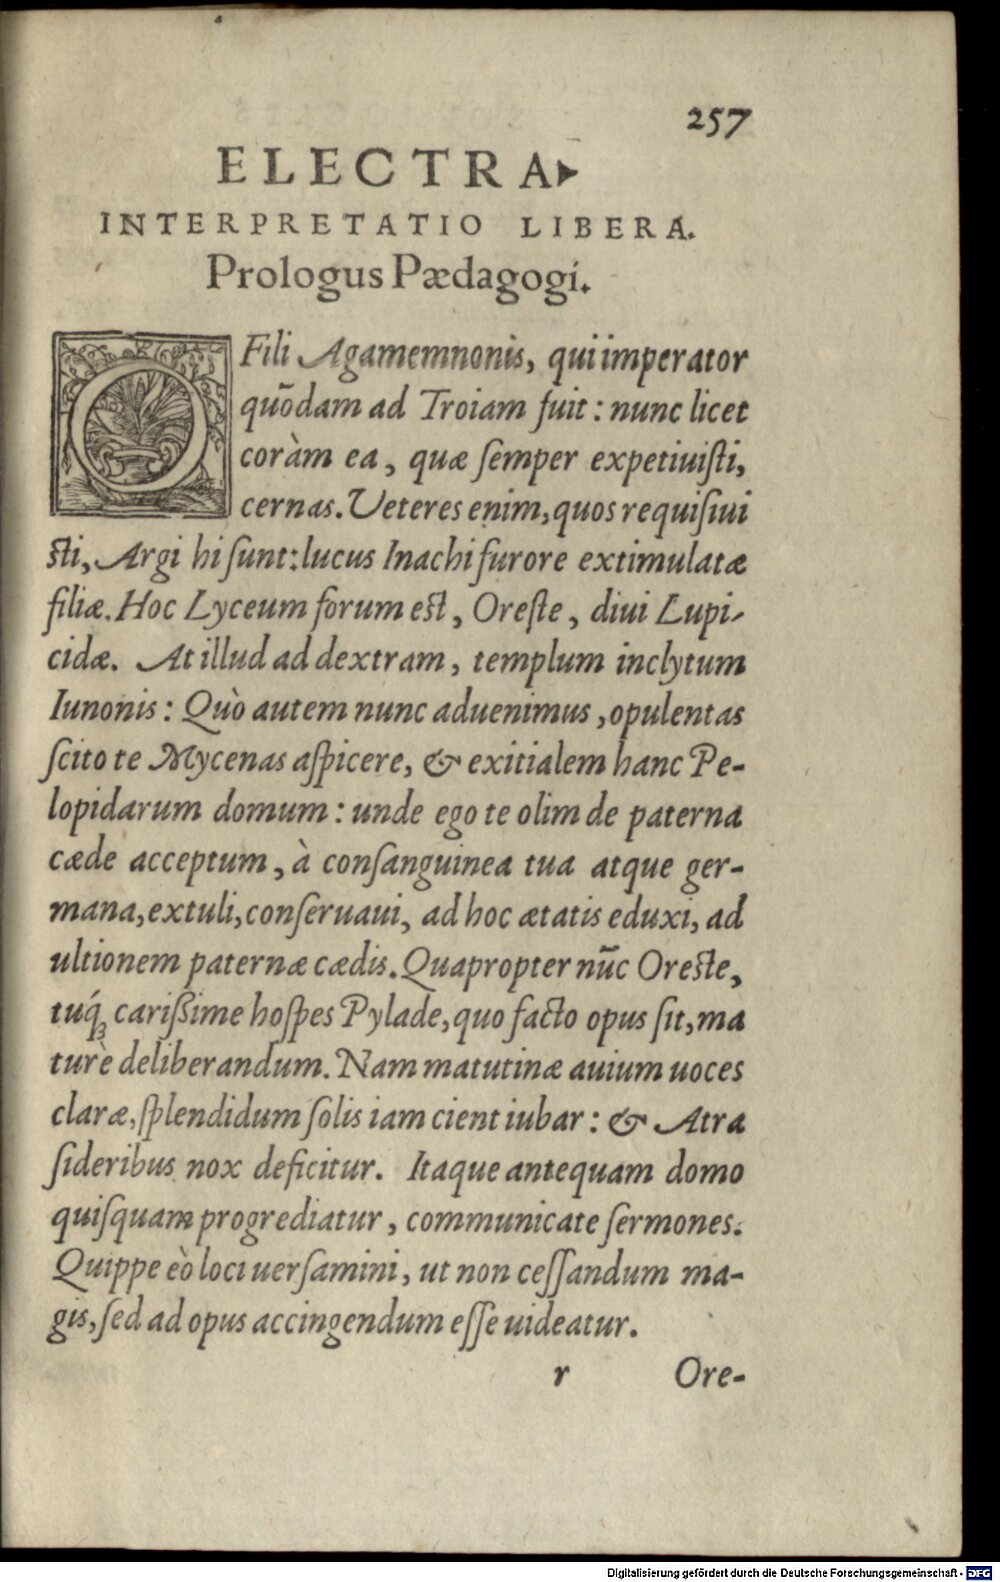 257
ELECTRA
INTERPRETATIO LIBERA.
Prologus Pædagogi.
O Fili Agamemnonis, qui imperator
quōdam ad Troiam fuit: nunc licet
coràm ea, quæ ſemper expetiuiſti,
cernas. Veteres enim, quos requiſiui
ſti, Argi hi ſunt: lucus Inachi furore extimulatæ
filiæ. Hoc Lyceum forum est, Oreſte, diui Lupi-
cidæ. At illud ad dextram, templum inclytum
Iunonis: Quò autem nunc aduenimus, opulentas
ſcito te Mycenas aſpicere, & exitialem hanc Pe-
lopidarum domum: unde ego te olim de paterna
cæde acceptum, à conſanguinea tua atque ger-
mana, extuli, conſeruaui, ad hoc ætatis eduxi, ad
ultionem paternæ cædis. Quapropter nūc Oreſte,
tuq́ꝫ carißime hoſpes Pylade, quo facto opus ſit, ma
turè deliberandum. Nam matutinæ auium uoces
claræ, ſplendidum ſolis iam cient iubar: & Atra
ſideribus nox deficitur. Itaque antequam domo
quiſquam progrediatur, communicate ſermones.
Quippe eò loci uerſamini, ut non ceſſandum ma-
gis, ſed ad opus accingendum eſſe uideatur.
r Ore-
Digitalisierung gefördert durch die Deutsche Forschungsgemeinschaft - DFG